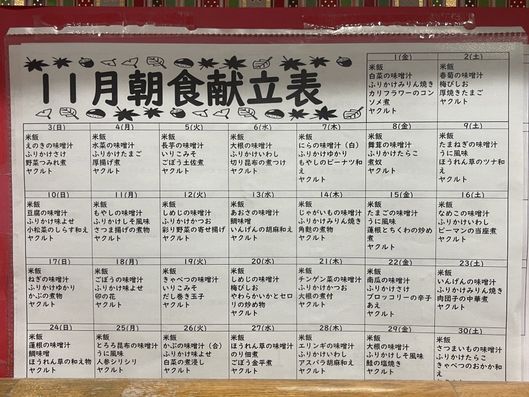 11月朝食献立表
1(金)
米飯
白菜の味噌汁
ふりかけみりん焼き
カリフラワーのコン
ソメ煮
ヤクルト
2(土)
米飯
春菊の味噌汁
梅びしお
厚焼きたまご
ヤクルト
3(日)
米飯
えのきの味噌汁
ふりかけさけ
野菜つみれ煮
ヤクルト
4(月)
米飯
水菜の味噌汁
ふりかけたまご
厚揚げ煮
ヤクルト
5(火)
米飯
長芋の味噌汁
いりこみそ
ごぼう土佐煮
ヤクルト
6(水)
米飯
大根の味噌汁
ふりかけいわし
切り昆布の煮つけ
ヤクルト
7(木)
米飯
にらの味噌汁(白)
ふりかけゆかり
もやしのピーナツ和
え
ヤクルト
8(金)
米飯
舞茸の味噌汁
ふりかけたらこ
煮奴
ヤクルト
9(土)
米飯
たまねぎの味噌汁
うに風味
ほうれん草のツナ和
え
ヤクルト
10(日)
米飯
豆腐の味噌汁
ふりかけ味よせ
小松菜のしらす和え
ヤクルト
11(月)
米飯
もやしの味噌汁
ふりかけしそ風味
さつま揚げの煮物
ヤクルト
12(火)
米飯
しめじの味噌汁
ふりかけかつお
彩り野菜の寄せ揚げ
ヤクルト
13(水)
米飯
あおさの味噌汁
鯛味噌
いんげんの胡麻和え
ヤクルト
14(木)
米飯
じゃがいもの味噌汁
ふりかけみりん焼き
角麩の煮物
ヤクルト
15(金)
米飯
たまごの味噌汁
うに風味
蓮根とちくわの炒め
煮
ヤクルト
16(土)
米飯
なめこの味噌汁
ふりかけいわし
ピーマンの当座煮
ヤクルト
17(日)
米飯
ねぎの味噌汁
ふりかけゆかり
かぶの煮物
ヤクルト
18(月)
米飯
ごぼうの味噌汁
ふりかけ味よせ
卯の花
ヤクルト
19(火)
米飯
きゃべつの味噌汁
いりこみそ
だし巻き玉子
ヤクルト
20(水)
米飯
しめじの味噌汁
梅びしお
やわらかいかとセロ
リの炒め物
ヤクルト
21(木)
米飯
チンゲン菜の味噌汁
ふりかけかつお
大根の煮付
ヤクルト
22(金)
米飯
南瓜の味噌汁
ふりかけさけ
ブロッコリーの辛子
あえ
ヤクルト
23(土)
米飯
いんげんの味噌汁
ふりかけみりん焼き
肉団子の中華煮
ヤクルト
24(日)
米飯
蓮根の味噌汁
鯛味噌
ほうれん草の和え物
ヤクルト
25(月)
米飯
とろろ昆布の味噌汁
うに風味
人参シリシリ
ヤクルト
26(火)
米飯
かぶの味噌汁(合)
ふりかけ味よせ
白菜の煮浸し
ヤクルト
27(水)
米飯
ほうれん草の味噌汁
のり佃煮
ごぼう金平煮
ヤクルト
28(木)
米飯
エリンギの味噌汁
ふりかけいわし
アスパラ胡麻和え
ヤクルト
29(金)
米飯
大根の味噌汁
ふりかけしそ風味
鮭の塩焼き
ヤクルト
30(土)
米飯
さつまいもの味噌汁
ふりかけたらこ
きゃべつのおかか和
え